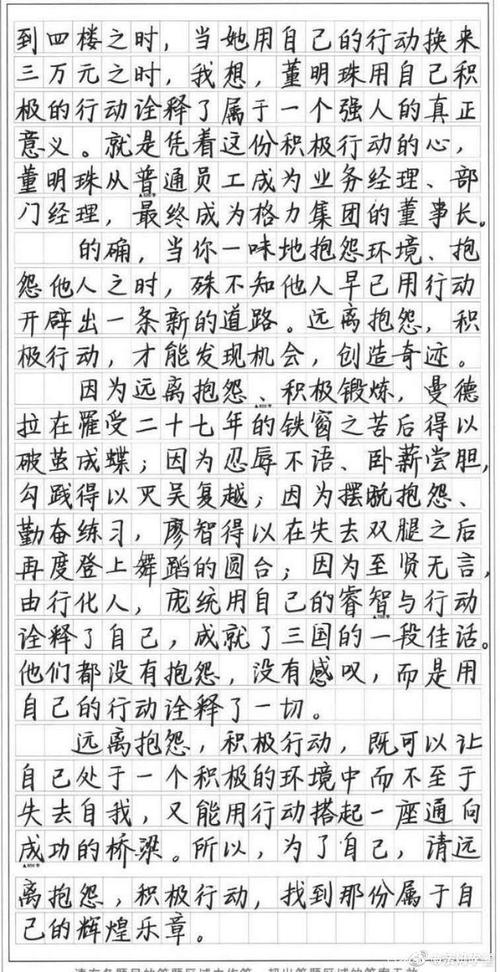 到四楼之时，当她用自己的行动换来
三万元之时，我想，董明珠用自己积
极的行动诠释了属于一个强人的真正
意义。就是凭着这份积极行动的心，
董明珠从普通员工成为业务经理、部
门经理，最终成为格力集团的董事长。
的确，当你一味地抱怨环境、抱
怨他人之时，殊不知他人早已用行动
开辟出一条新的道路。远离抱怨，积
极行动，才能发现机会，创造奇迹。
因为远离抱怨、积极锻炼，曼德
拉在罹受二十七年的铁窗之苦后得以
破茧成蝶；因为忍辱不语、卧薪尝胆，
勾践得以灭吴复越；因为摆脱抱怨、
勤奋练习，廖智得以在失去双腿之后
再度登上舞蹈的圆台；因为至贤无言，
由行化人，庞统用自己的睿智与行动
诠释了自己，成就了三国的一段佳话。
他们都没有抱怨，没有感叹，而是用
自己的行动诠释了一切。
远离抱怨，积极行动，既可以让
自己处于一个积极的环境中而不至于
失去自我，又能用行动搭起一座通向
成功的桥梁。所以，为了自己，请远
离抱怨，积极行动，找到那份属于自
己的辉煌乐章。